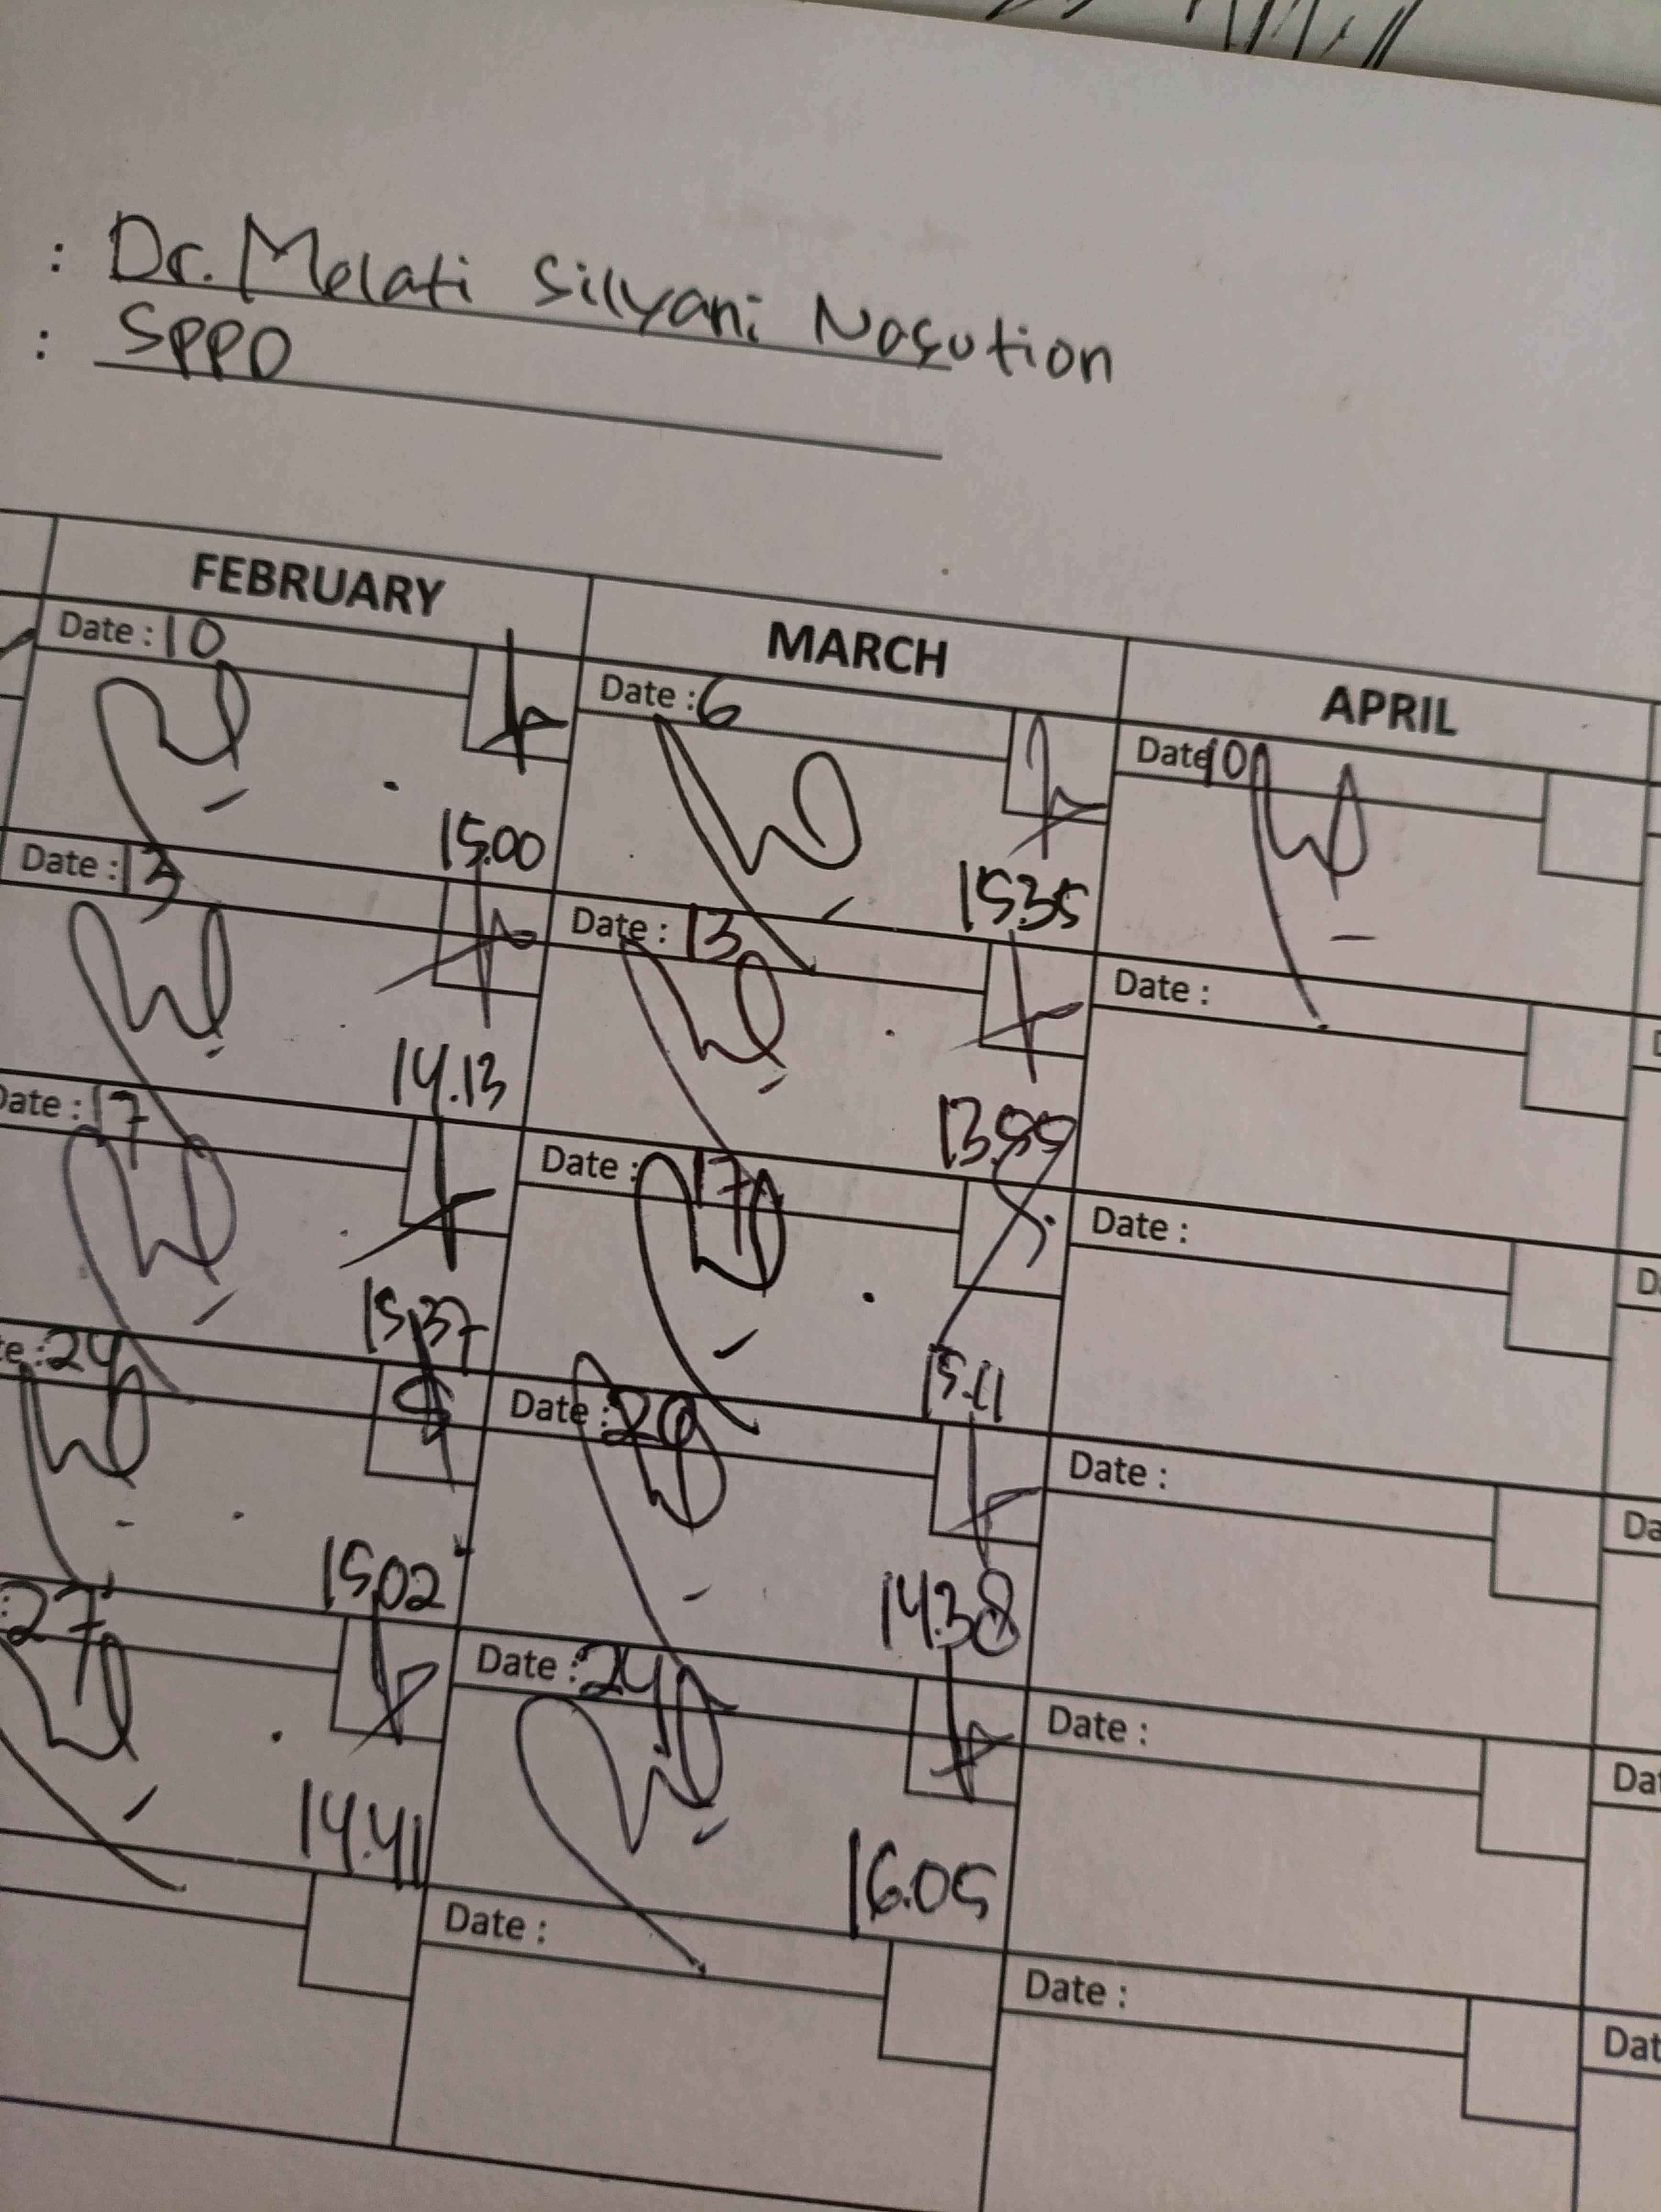 : Dr. Melati Silvyani Nasution
: SPPD
FEBRUARY MARCH APRIL
Date : 10 Date : 6 Date 10
15.00 15.35
Date : 13 Date : 13 Date :
14.13
Date : 17 Date : 17 Date :
15.37 15.11
24 Date : 20 Date :
15.02 14.38
27 Date : 24 Date :
14.41 16.05
Date : Date :